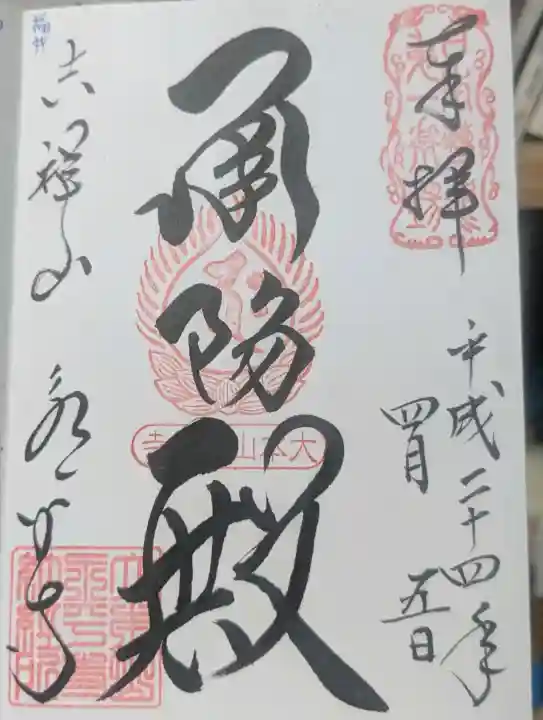 奉拝
平成二十四年
四月
五日
承陽殿
大本山永平寺
吉祥山 永平寺
福井